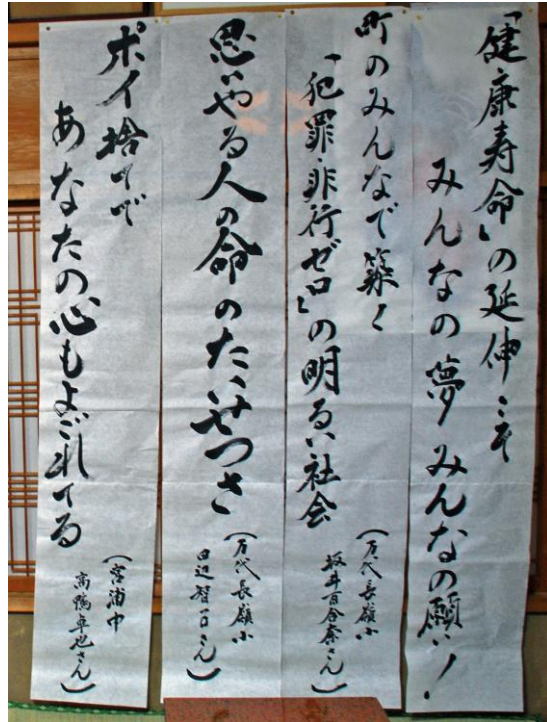 「健康寿命」の延伸こそ
みんなの夢 みんなの願い！
町のみんなで築く
「犯罪・非行ゼロ」の明るい社会
（万代長嶺小
坂井百合奈さん）
思いやる人の命のたいせつさ
（万代長嶺小
田辺智一口さん）
ポイ捨てで
あなたの心もよごれてる
（宮浦中
高鴨卓也さん）